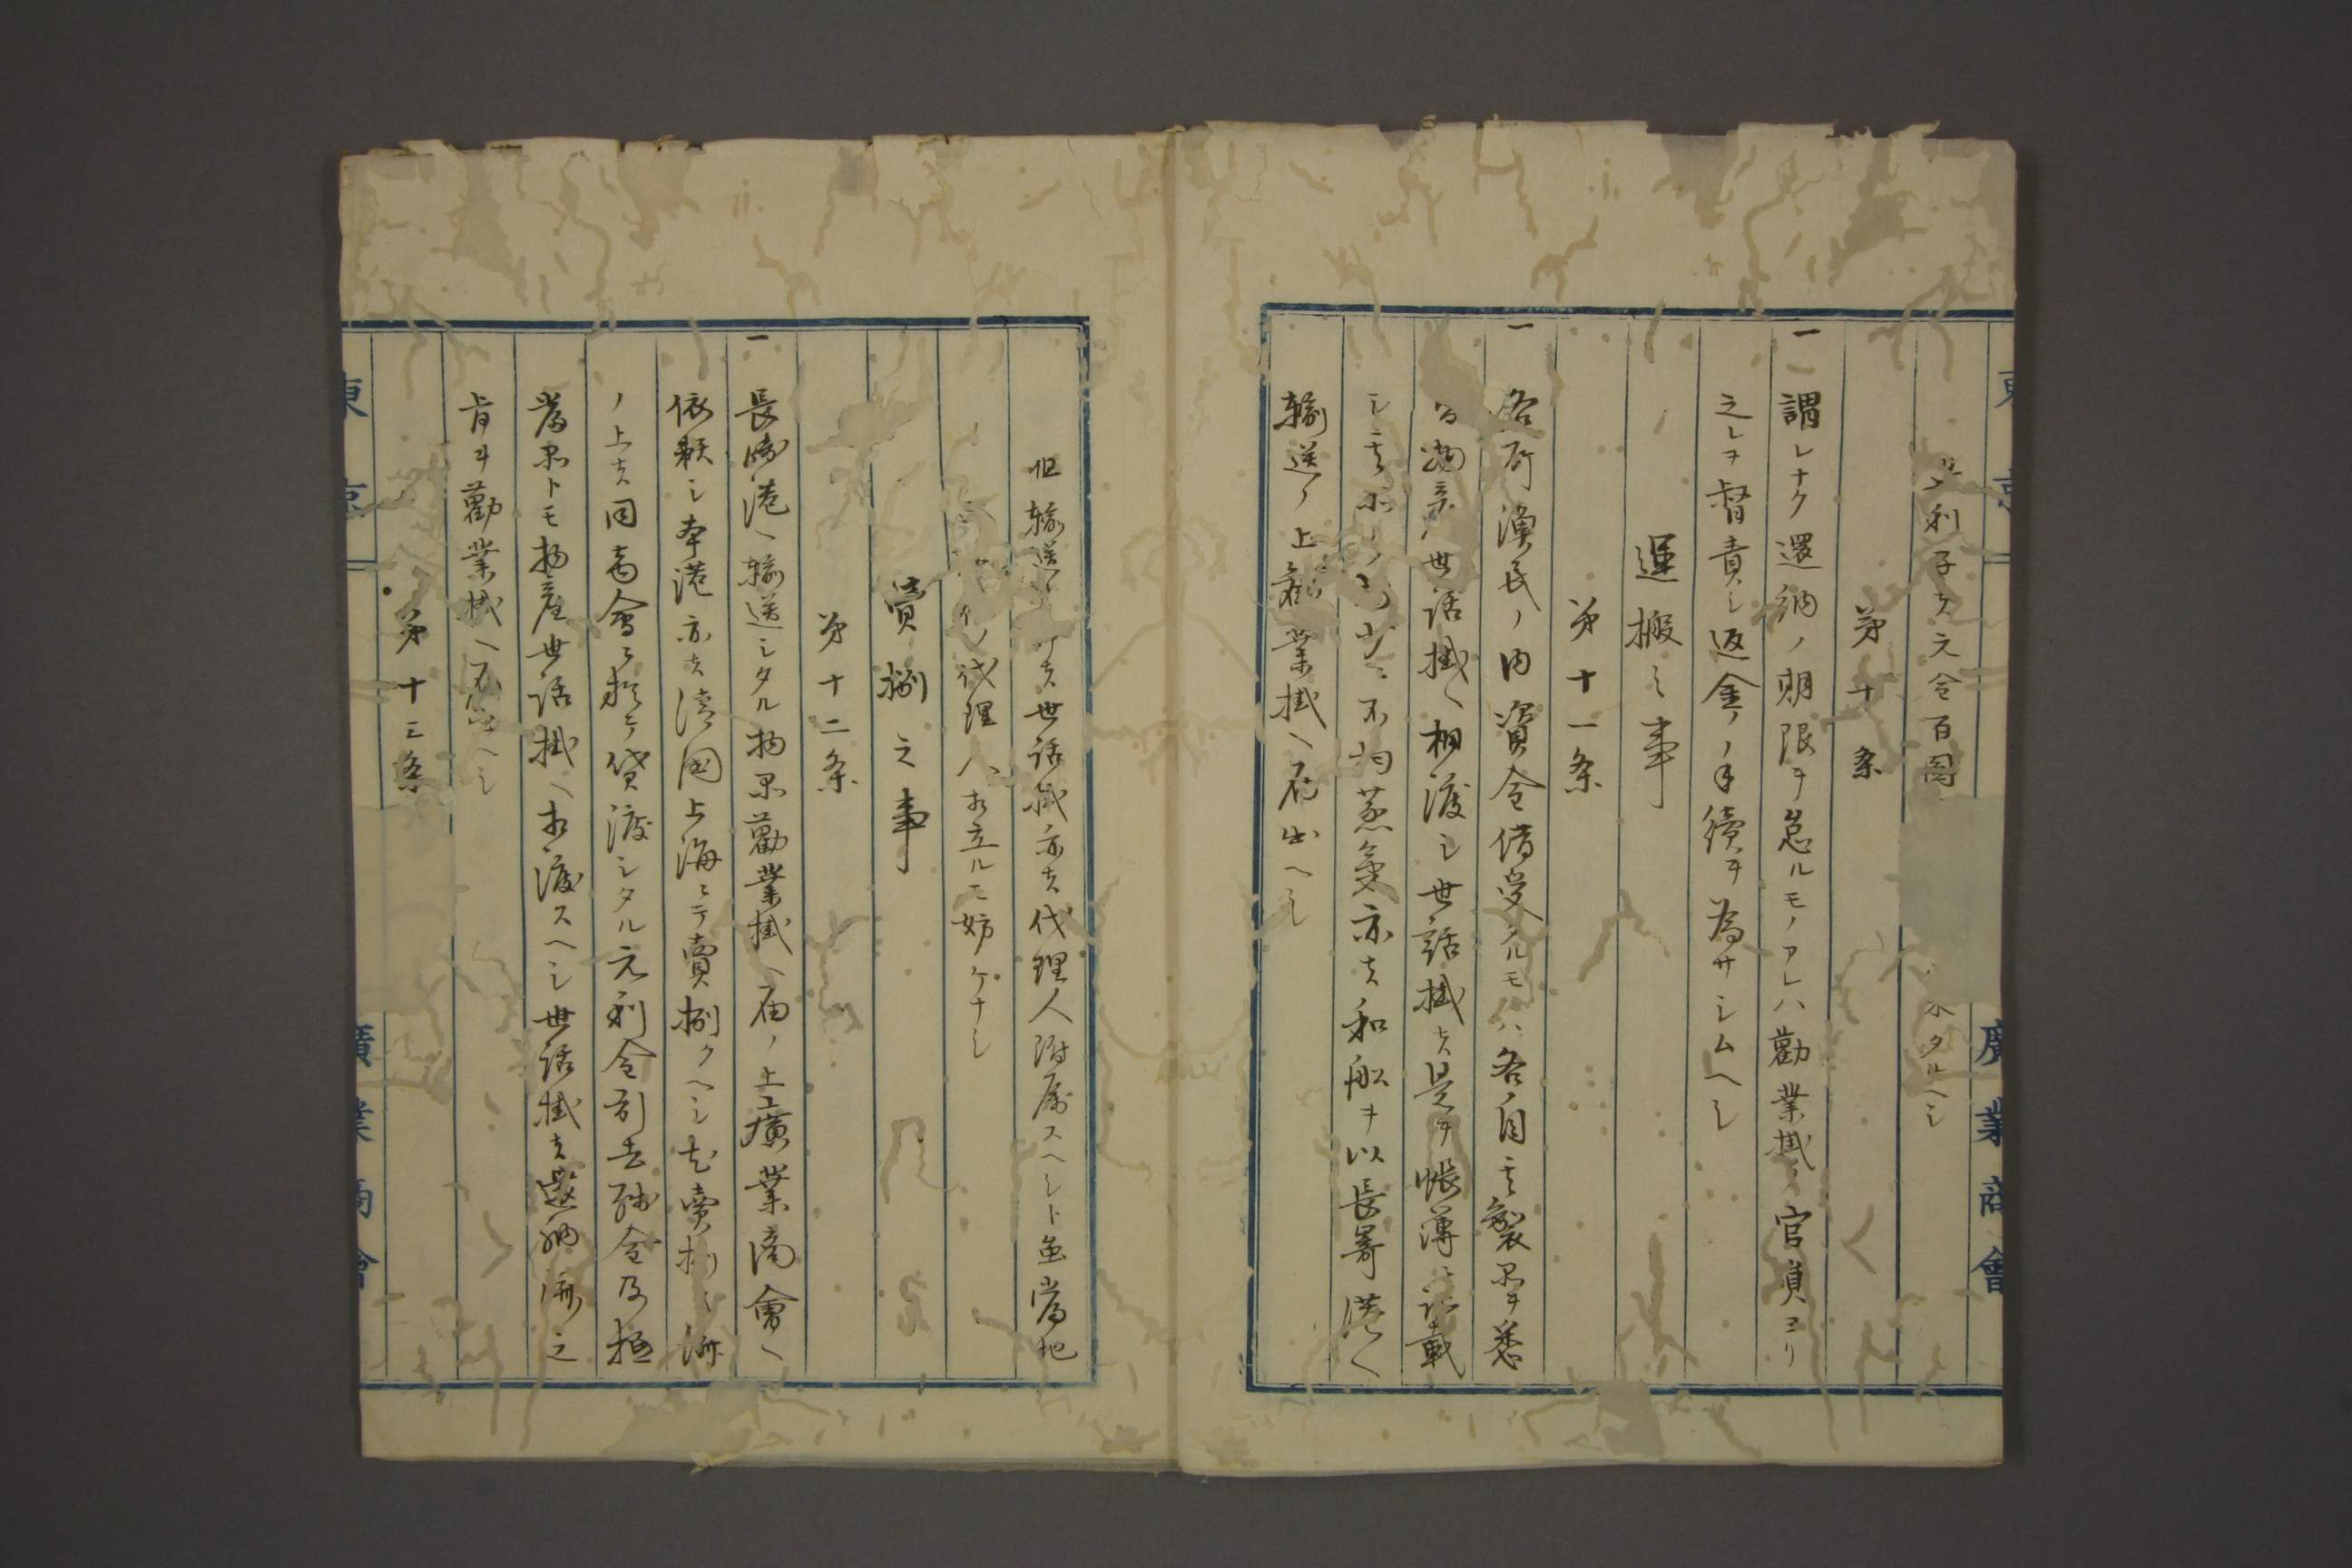 東京
廣業商會
利子ハ元金百圓
タルヘシ
第十条
一謂レナク還納ノ期限ヲ怠ルモノアレハ勸業掛ノ官員ヨリ
之レヲ督責シ返金ノ手續ヲ為サシムヘシ
運搬之事
第十一条
一各所漁民ノ内資金借受クルモノハ各自其製品ヲ悉
世話掛ヘ相渡シ世話掛ハ是ヲ帳薄ニ記載
シ其 不拘蒸氣亦ハ和船ヲ以長崎港ヘ
輸送ノ上勸業掛ヘ届出ヘシ
但輸送 ハ世話掛亦ハ代理人附属スヘシト雖當地
代理人相立ルモ妨ケナシ
賣捌之事
第十二条
一長崎港ヘ輸送シタル物品勸業掛ヘ届ノ上廣業商會ヘ
依頼シ本港亦ハ清國上海ニテ賣捌クヘシ尤賣捌済
ノ上ハ同商會ニ於テ貸渡シタル元利金引去残金及
品トモ物産世話掛ヘ相渡スヘシ世話掛ハ還納済之
旨ヲ勸業掛ヘ ヘシ
第十三条
東京
廣業商會